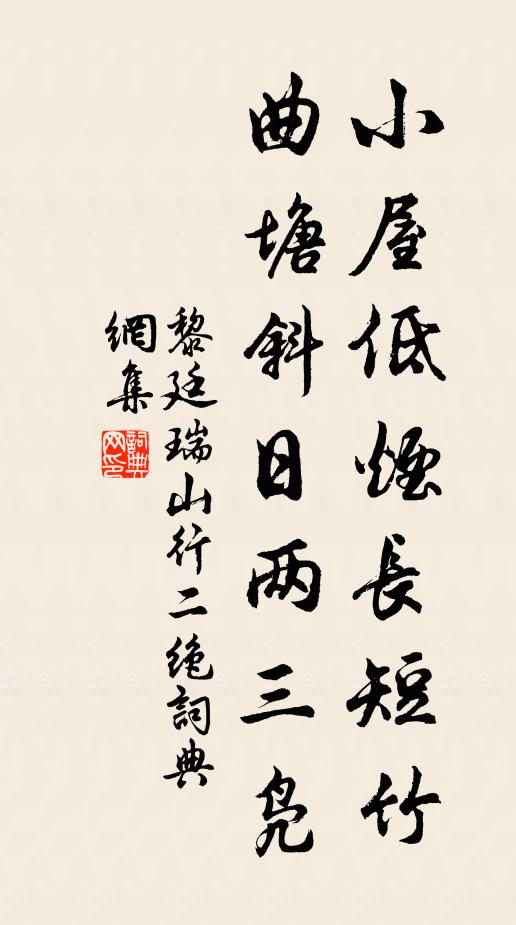 小屋低煙長短竹
曲塘斜日两三凫
黎廷瑞山行二绝詞典
網集
詞典网印